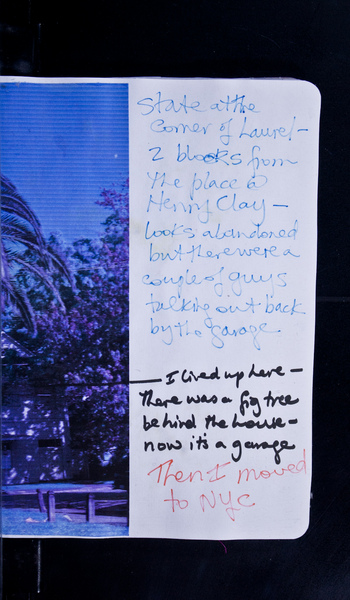 State at the
corner of Laurel -
2 blocks from
the place @
Henry Clay -
looks abandoned
but there were a
couple of guys
talking out back
by the garage
I lived up here -
there was a fig tree
behind the house -
now it's a garage
Then I moved
to NYC